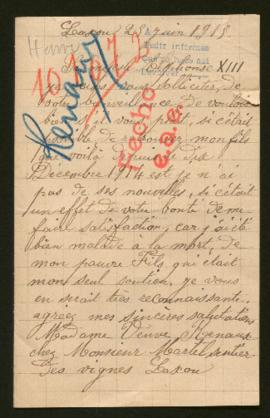 Laxou 25 juin 1915
Henry
pedir informes
Alphonse XIII
10
1072
Renaux
Fecho
votre bienveillance de vouloir
bien à votre point, si c'était
possible de retrouver mon fils
voilà depuis le
Décembre 1914 et je n'ai
pas de ses nouvelles, si c'était
un effet de votre bonté de me
faire satisfaction, car j'ai été
bien malade à la mort, de
mon pauvre Fils qui était
mon seul soutien, je vous
en serait très reconnaissante.
agreez mes sincères salutations
Madame Veuve Renaux
chez Monsieur Martel sentier
des vignes Laxou